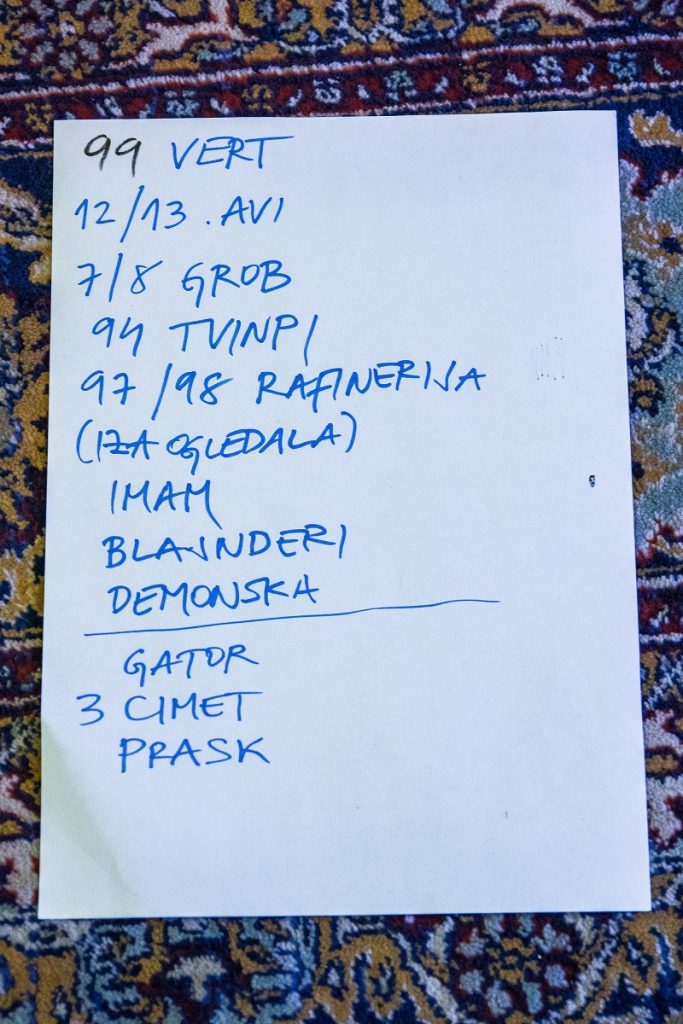 99 VERT
12/13 . AVI
7/8 GROB
94 TVINPI
97/98 RAFINERIJA
(IZA OGLEDALA)
IMAM
BLAJNDERI
DEMONSKA
GATOR
3 CIMET
PRASK